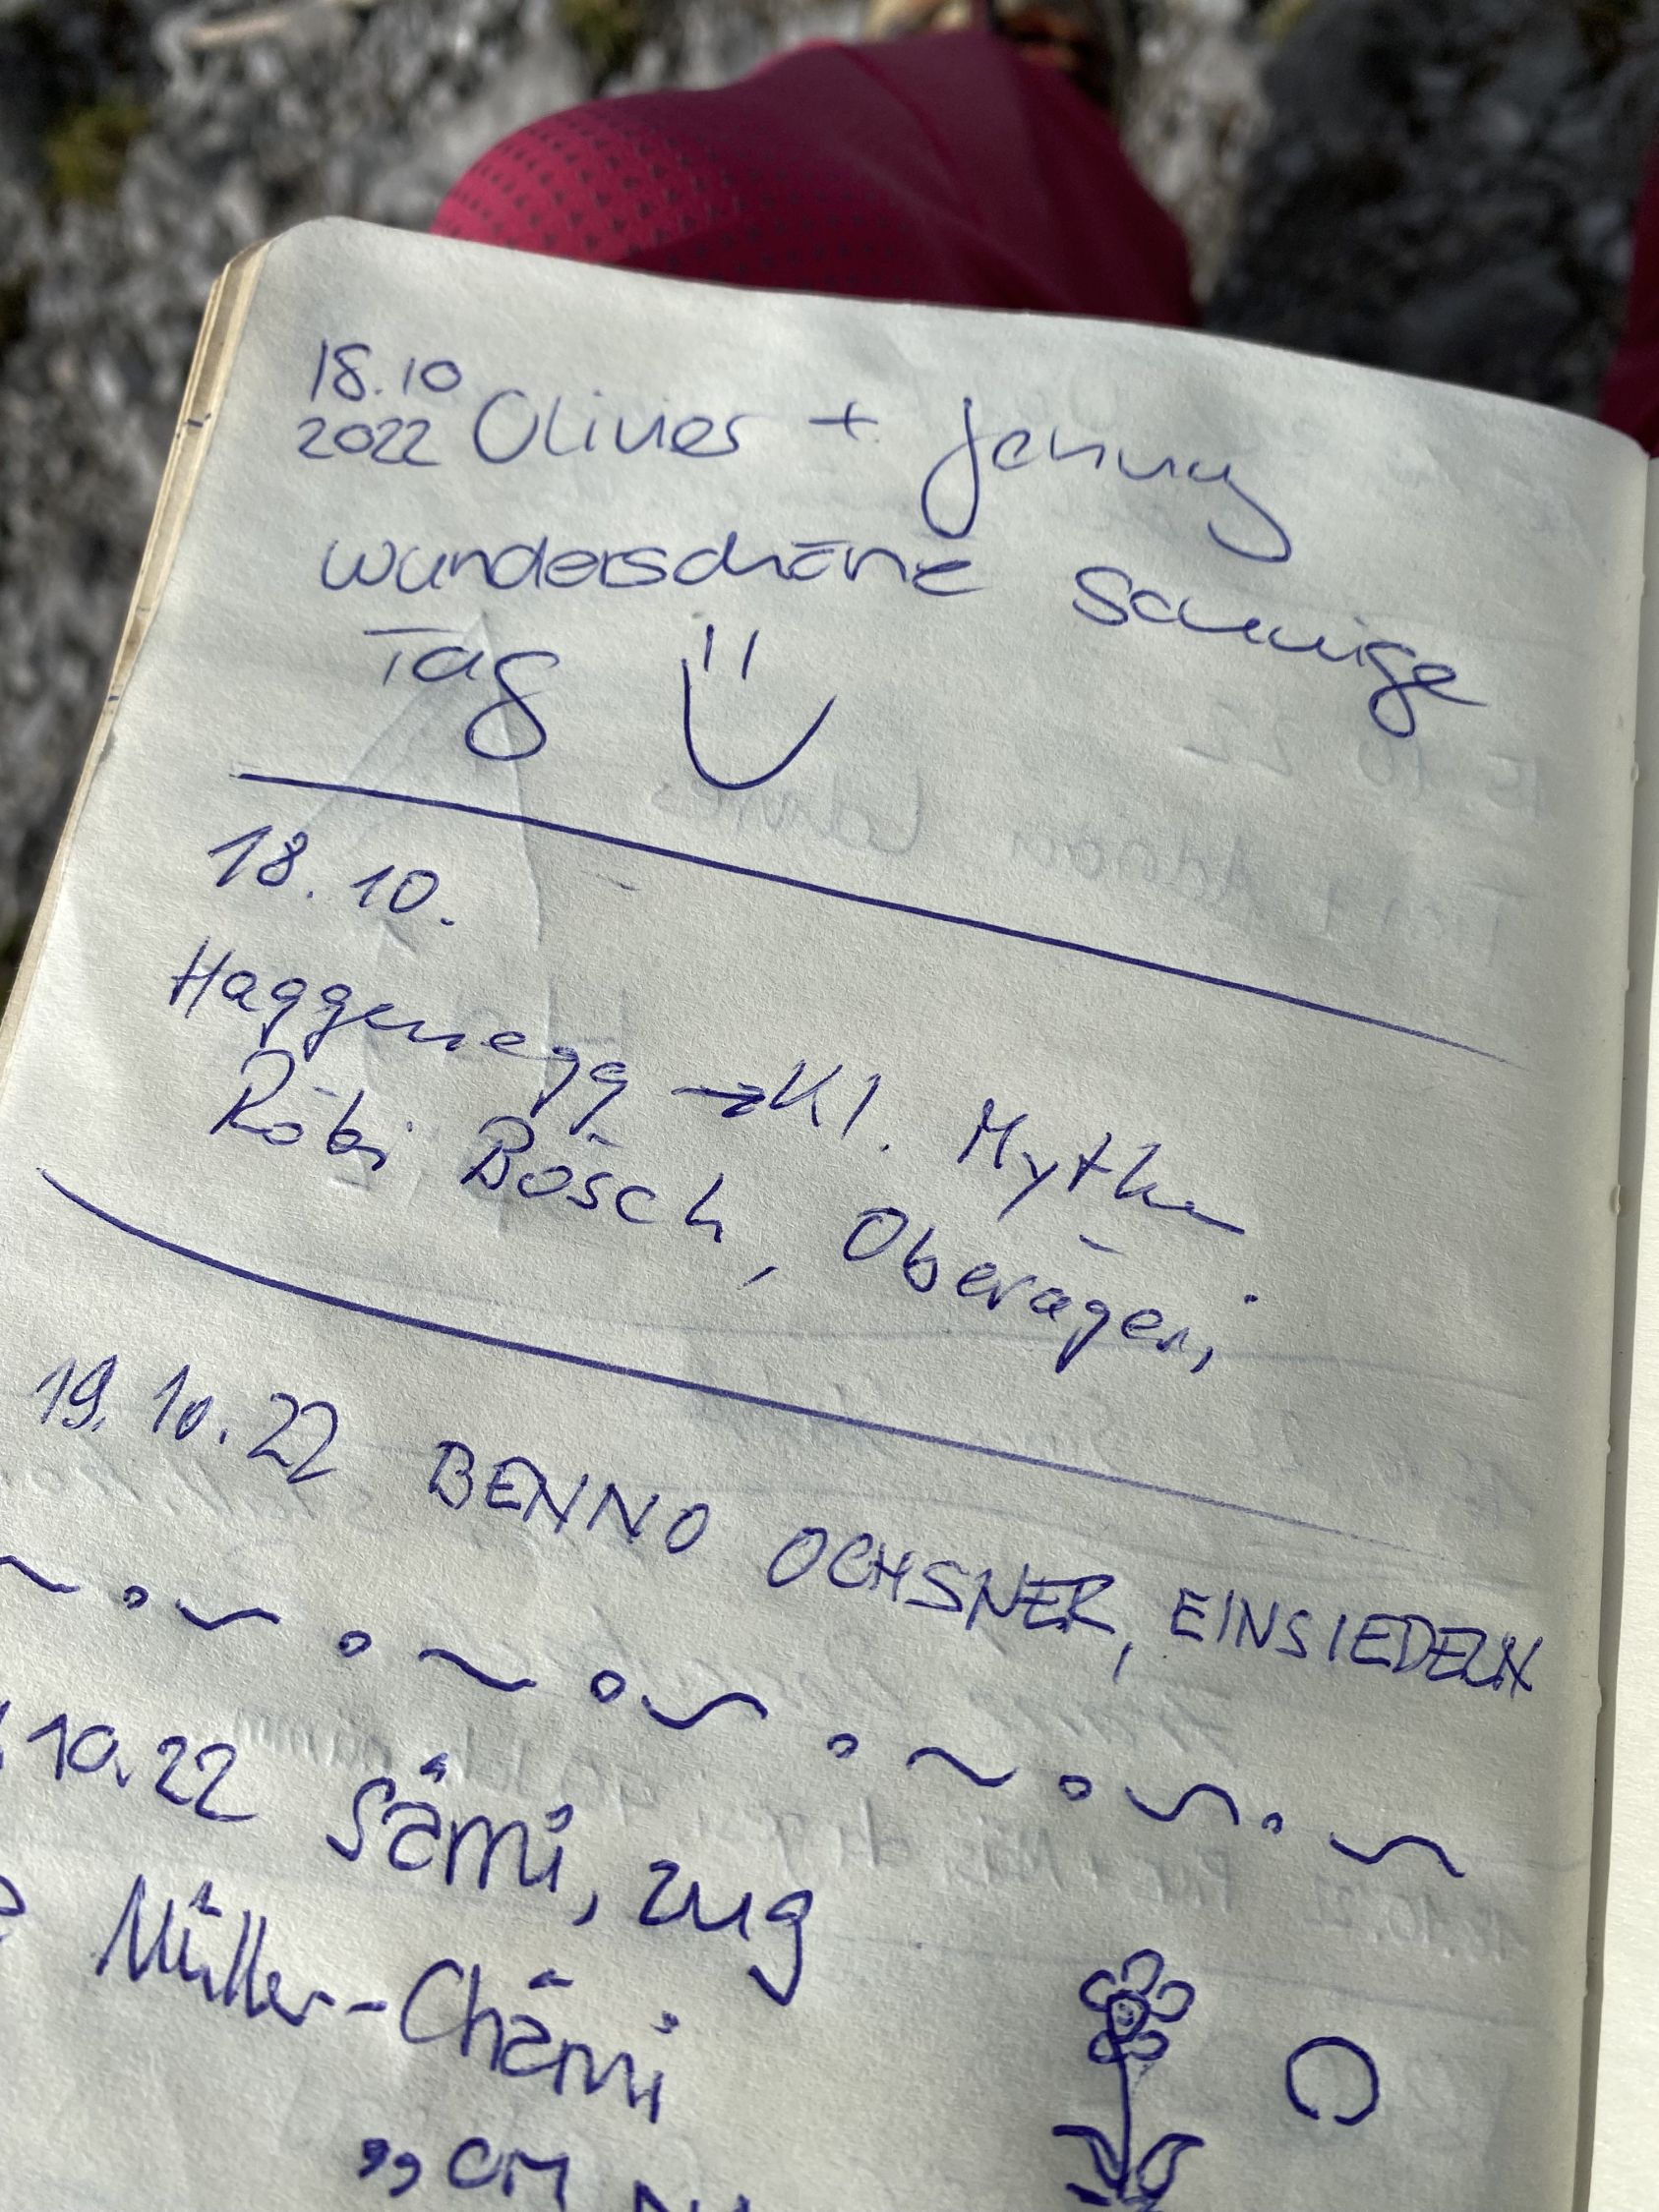 18.10
2022 Olivier + Jenny
wunderschöne sunnige
Tag
18.10.
Haggenegg → Kl. Mythen
Röbi Bösch, Oberägeri
19.10.22 BENNO OCHSNER, EINSIEDELN
10.22 Sämi, Zug
Müller-Chämi